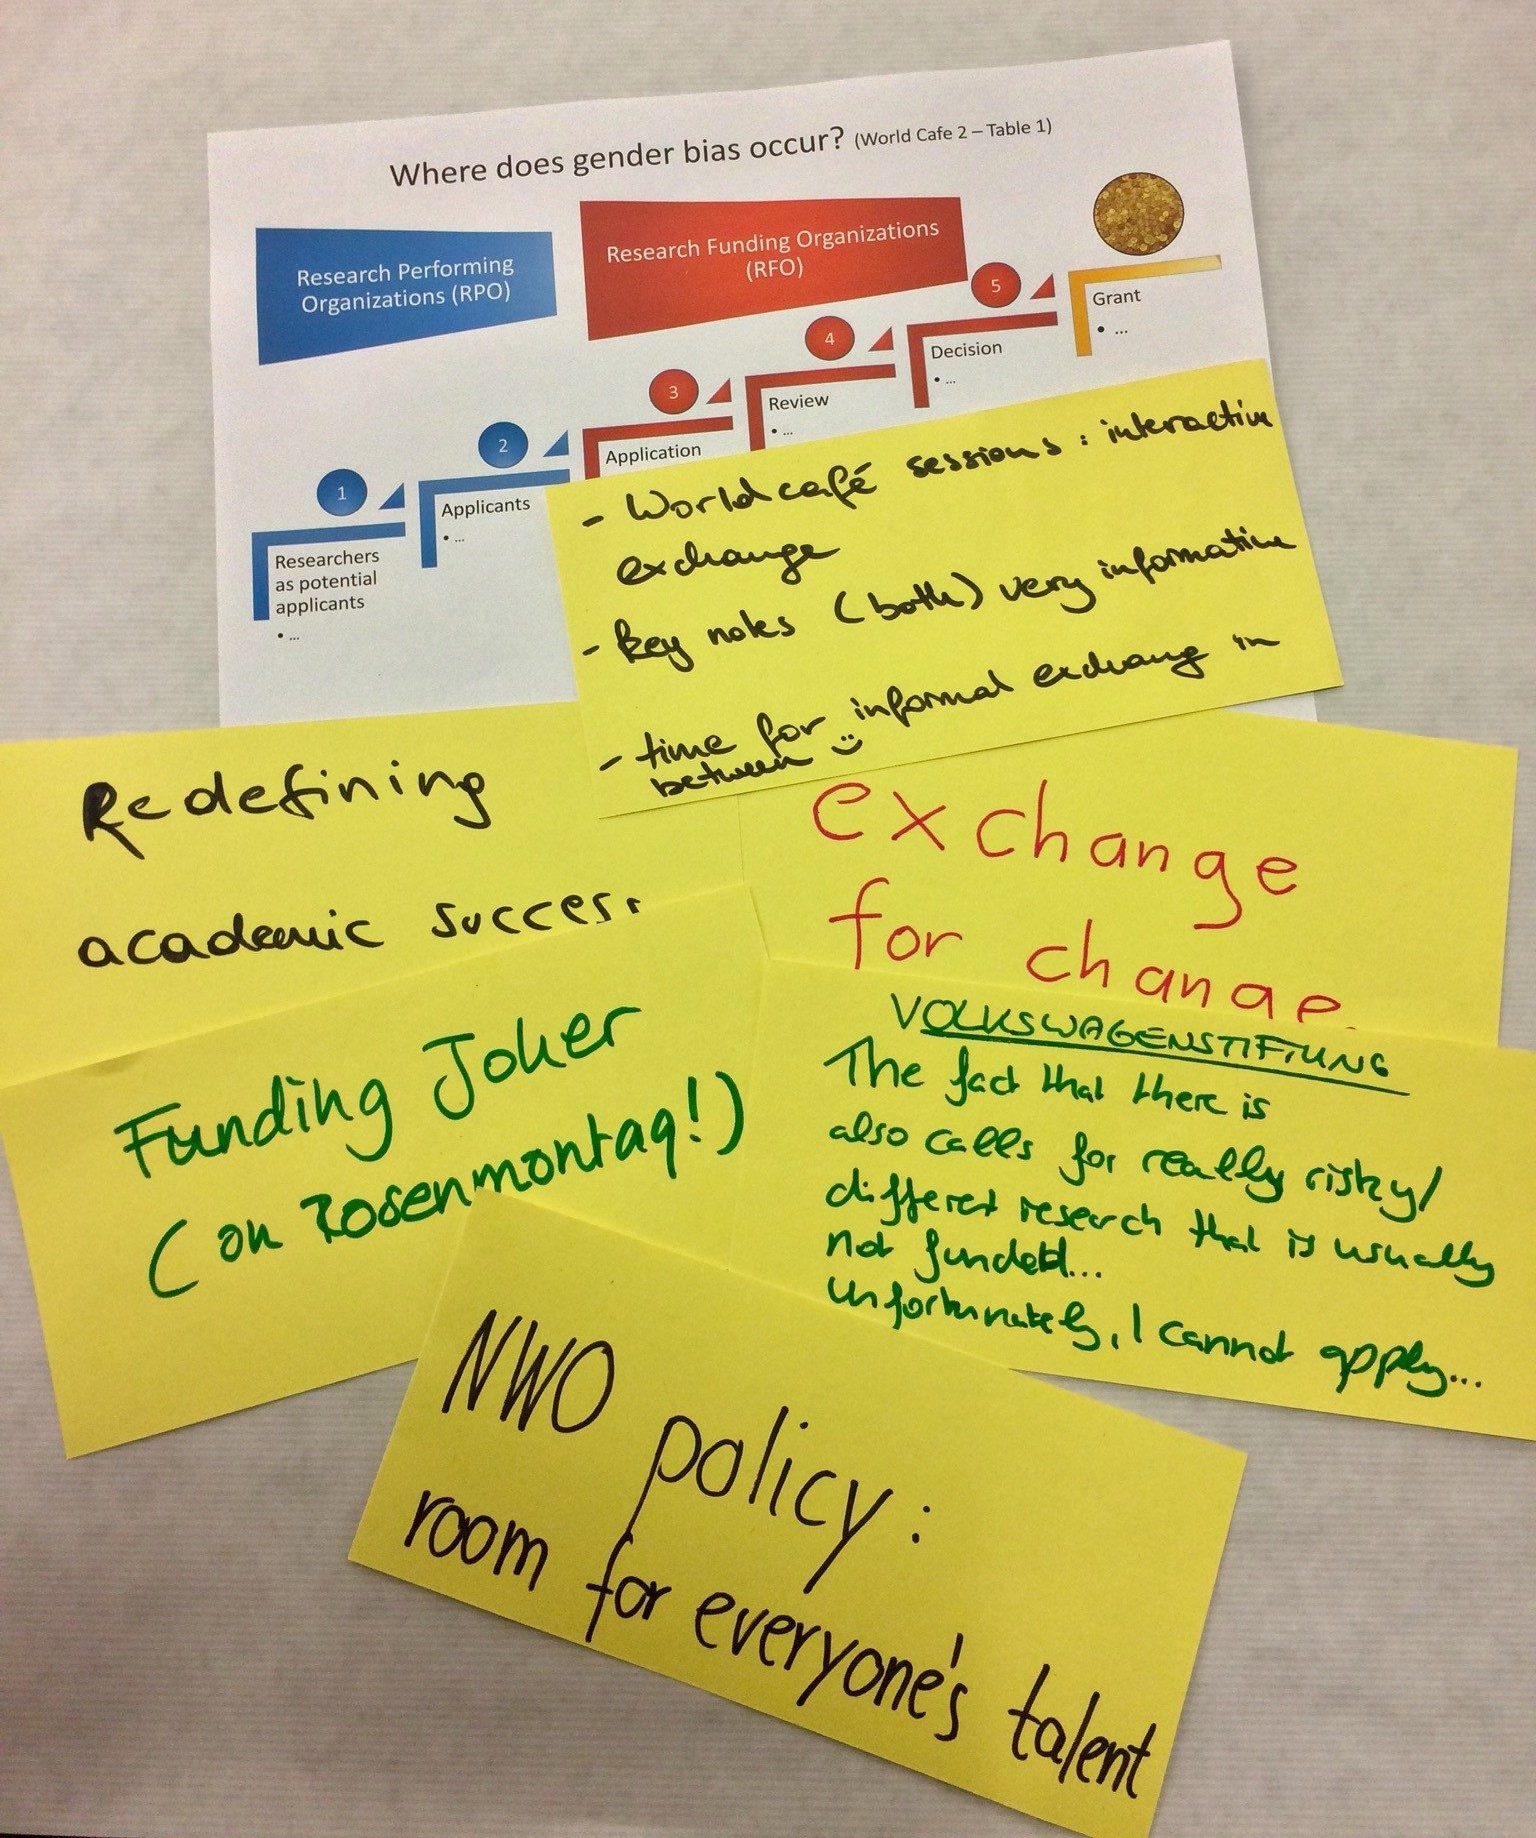 Where does gender bias occur? (World Cafe 2 – Table 1)
Research Performing
Organizations (RPO)
Research Funding Organizations
(RFO)
5
Grant
• ...
4
Decision
• ...
3
Review
• ...
2
Application
1
Applicants
• ...
Researchers
as potential
applicants
• ...
- World café sessions : interactive
exchange
- Key notes (both) very informative
- time for informal exchang in
between :)
Redefining
academic success
exchange
for change
Funding Joker
(on Rosenmontag!)
VOLKSWAGENSTIFTUNG
The fact that there is
also calls for really risky/
different research that is usually
not funded...
Unfortunately, I cannot apply...
NWO policy:
room for everyone's talent